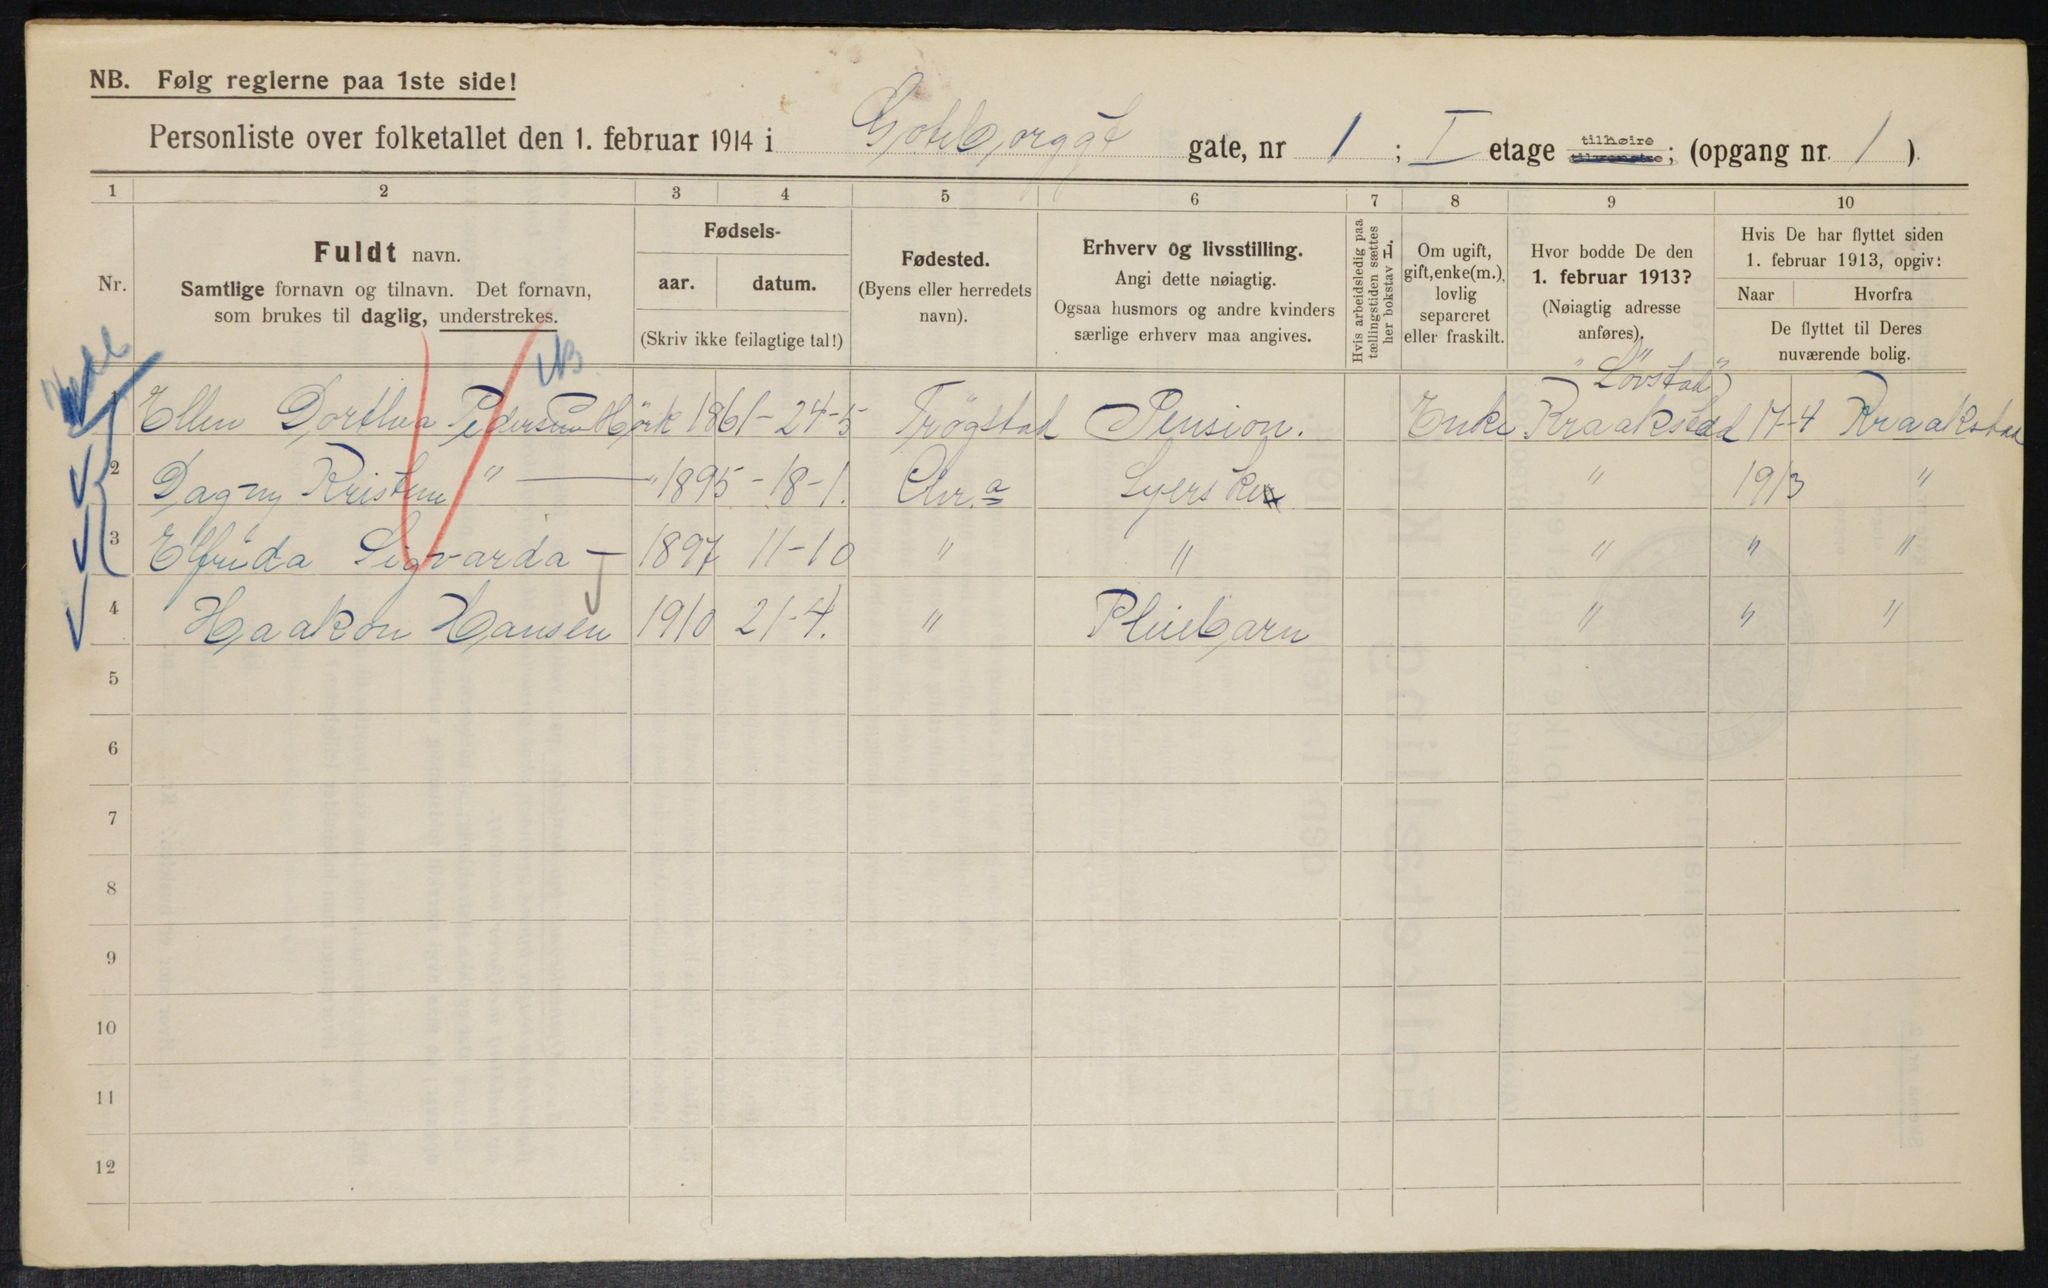 NB. Følg reglerne paa 1ste side!
Personliste over folketallet den 1. februar 1914 i Gøteborggt gate, nr 1 ; I etage tilhøire ; (opgang nr. 1 ).
1 2 3 4 5 6 7 8 9 10
Nr.
Fuldt navn.
Samtlige fornavn og tilnavn. Det fornavn,
som brukes til daglig, understrekes.
Fødsels-
aar. datum.
(Skriv ikke feilagtige tal!)
Fødested.
(Byens eller herredets
navn).
Erhverv og livsstilling.
Angi dette nøiagtig.
Ogsaa husmors og andre kvinders
særlige erhverv maa angives.
Hvis arbeidsledig paa
tællingstiden sættes
her bokstav L.
Om ugift,
gift, enke(m.),
lovlig
separeret
eller fraskilt.
Hvor bodde De den
1. februar 1913?
(Nøiagtig adresse
anføres).
Hvis De har flyttet siden
1. februar 1913, opgiv:
Naar Hvorfra
De flyttet til Deres
nuværende bolig.
NB.
"Lövstad"
Ellen Dorthea Pedersen Hörk 1861 - 24-5 Trögstad Pension. Enke Kraakstad 17-4 Kraakstad
2 Dagny Kristine " — " 1895 - 18-1. Chr.a Syerske " 1913 "
3 Elfrida Sigvarda — 1897 11-10 " " " " "
4 Haakon Hansen 1910 21-4. " Pleiebarn " " "
5
6
7
8
9
10
11
12